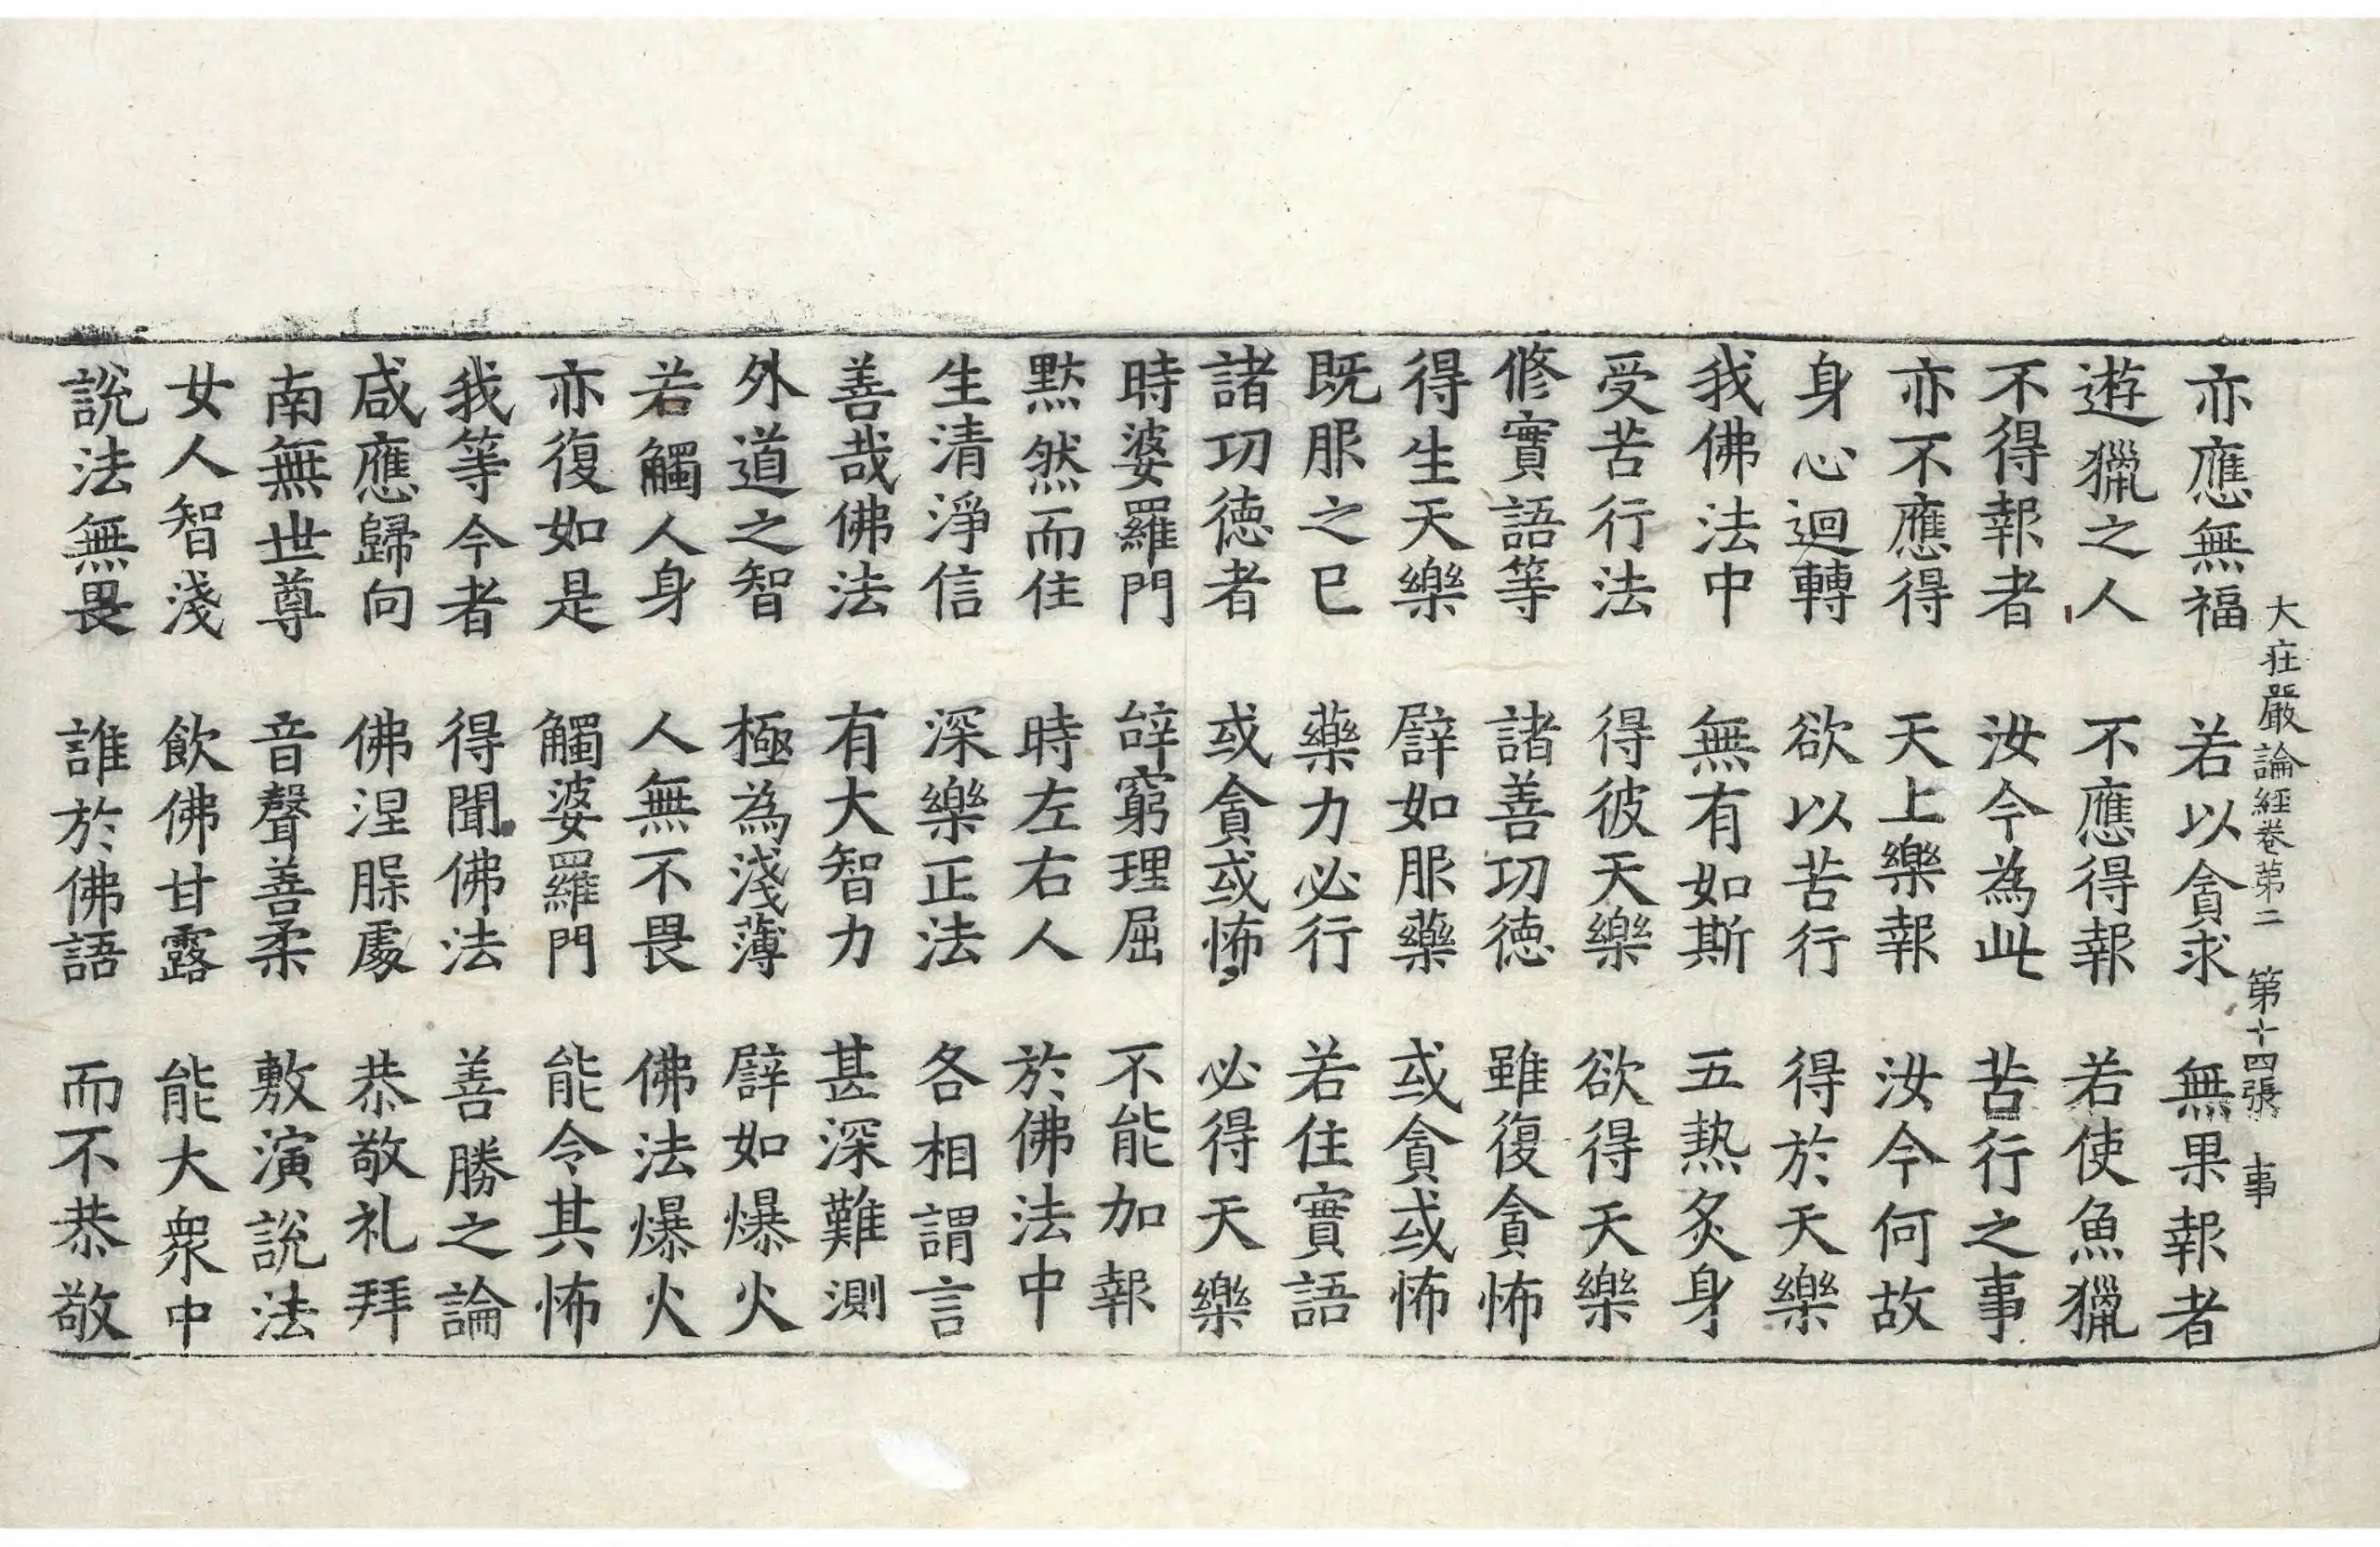 大庄嚴論經卷第二 第十四張 事
亦應無福 若以貪求 無果報者
遊獵之人 不應得報 若使魚獵
不得報者 汝今為此 苦行之事
亦不應得 天上樂報 汝今何故
身心迴轉 欲以苦行 得於天樂
我佛法中 無有如斯 五热炙身
受苦行法 得彼天樂 欲得天樂
修實語等 諸善功徳 雖復貪怖
得生天樂 譬如服藥 或貪或怖
既服之已 藥力必行 若住實語
諸功徳者 或貪或怖 必得天樂
時婆羅門 辝窮理屈 不能加報
黙然而住 時左右人 於佛法中
生清淨信 深樂正法 各相謂言
善哉佛法 有大智力 甚深難測
外道之智 極為淺薄 譬如爆火
若觸人身 人無不畏 佛法爆火
亦復如是 觸婆羅門 能令其怖
我等今者 得聞佛法 善勝之論
咸應歸向 佛涅槃處 恭敬礼拜
南無世尊 音聲善柔 敷演說法
女人智淺 飲佛甘露 能大衆中
說法無畏 誰於佛語 而不恭敬